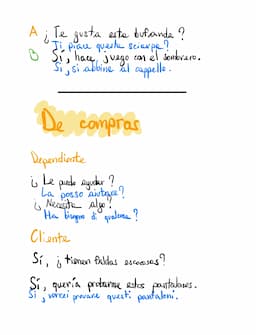 A ¿Te gusta esta bufanda?
Ti piace questa sciarpa?
B Sí, hace juego con el sombrero.
Sì, si abbina al cappello.
De compras
Dependiente
¿Le puedo ayudar?
La posso aiutare?
¿Necesita algo?
Ha bisogno di qualcosa?
Cliente
Sí, ¿tienen faldas escocesas?
Sí, quería probarme estos pantalones.
Sì, vorrei provare questi pantaloni.